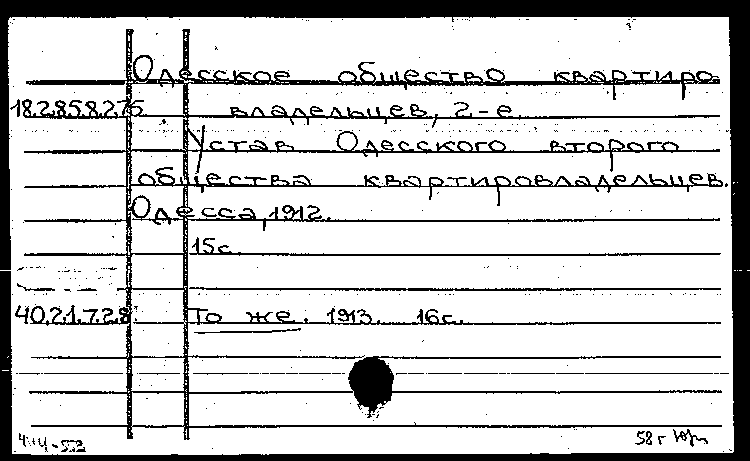 Одесское общество квартиро-
18.285.8.275. владельцев, 2-е.
Устав Одесского второго
общества квартировладельцев.
Одесса, 1912.
15с.
40.21.7.28. То же. 1913. 16с.
58 г